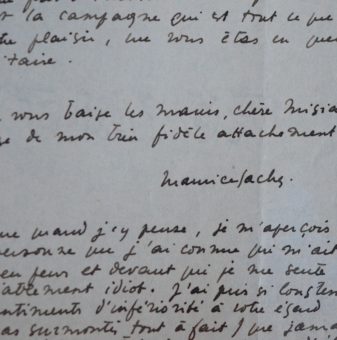 la campagne qui est tout ce que
plaisir, que vous êtes en
taire.
vous baise les mains, chère Misia
de mon très fidèle attachement
Maurice Sachs.
que quand j'y pense, je m'aperçois
personne que j'ai connue qui m'ait
peur et devant qui je me sente
idiot. J'ai puis si longtem
ntiments d'infériorité à votre égard
as surmontés tout à fait) que jama